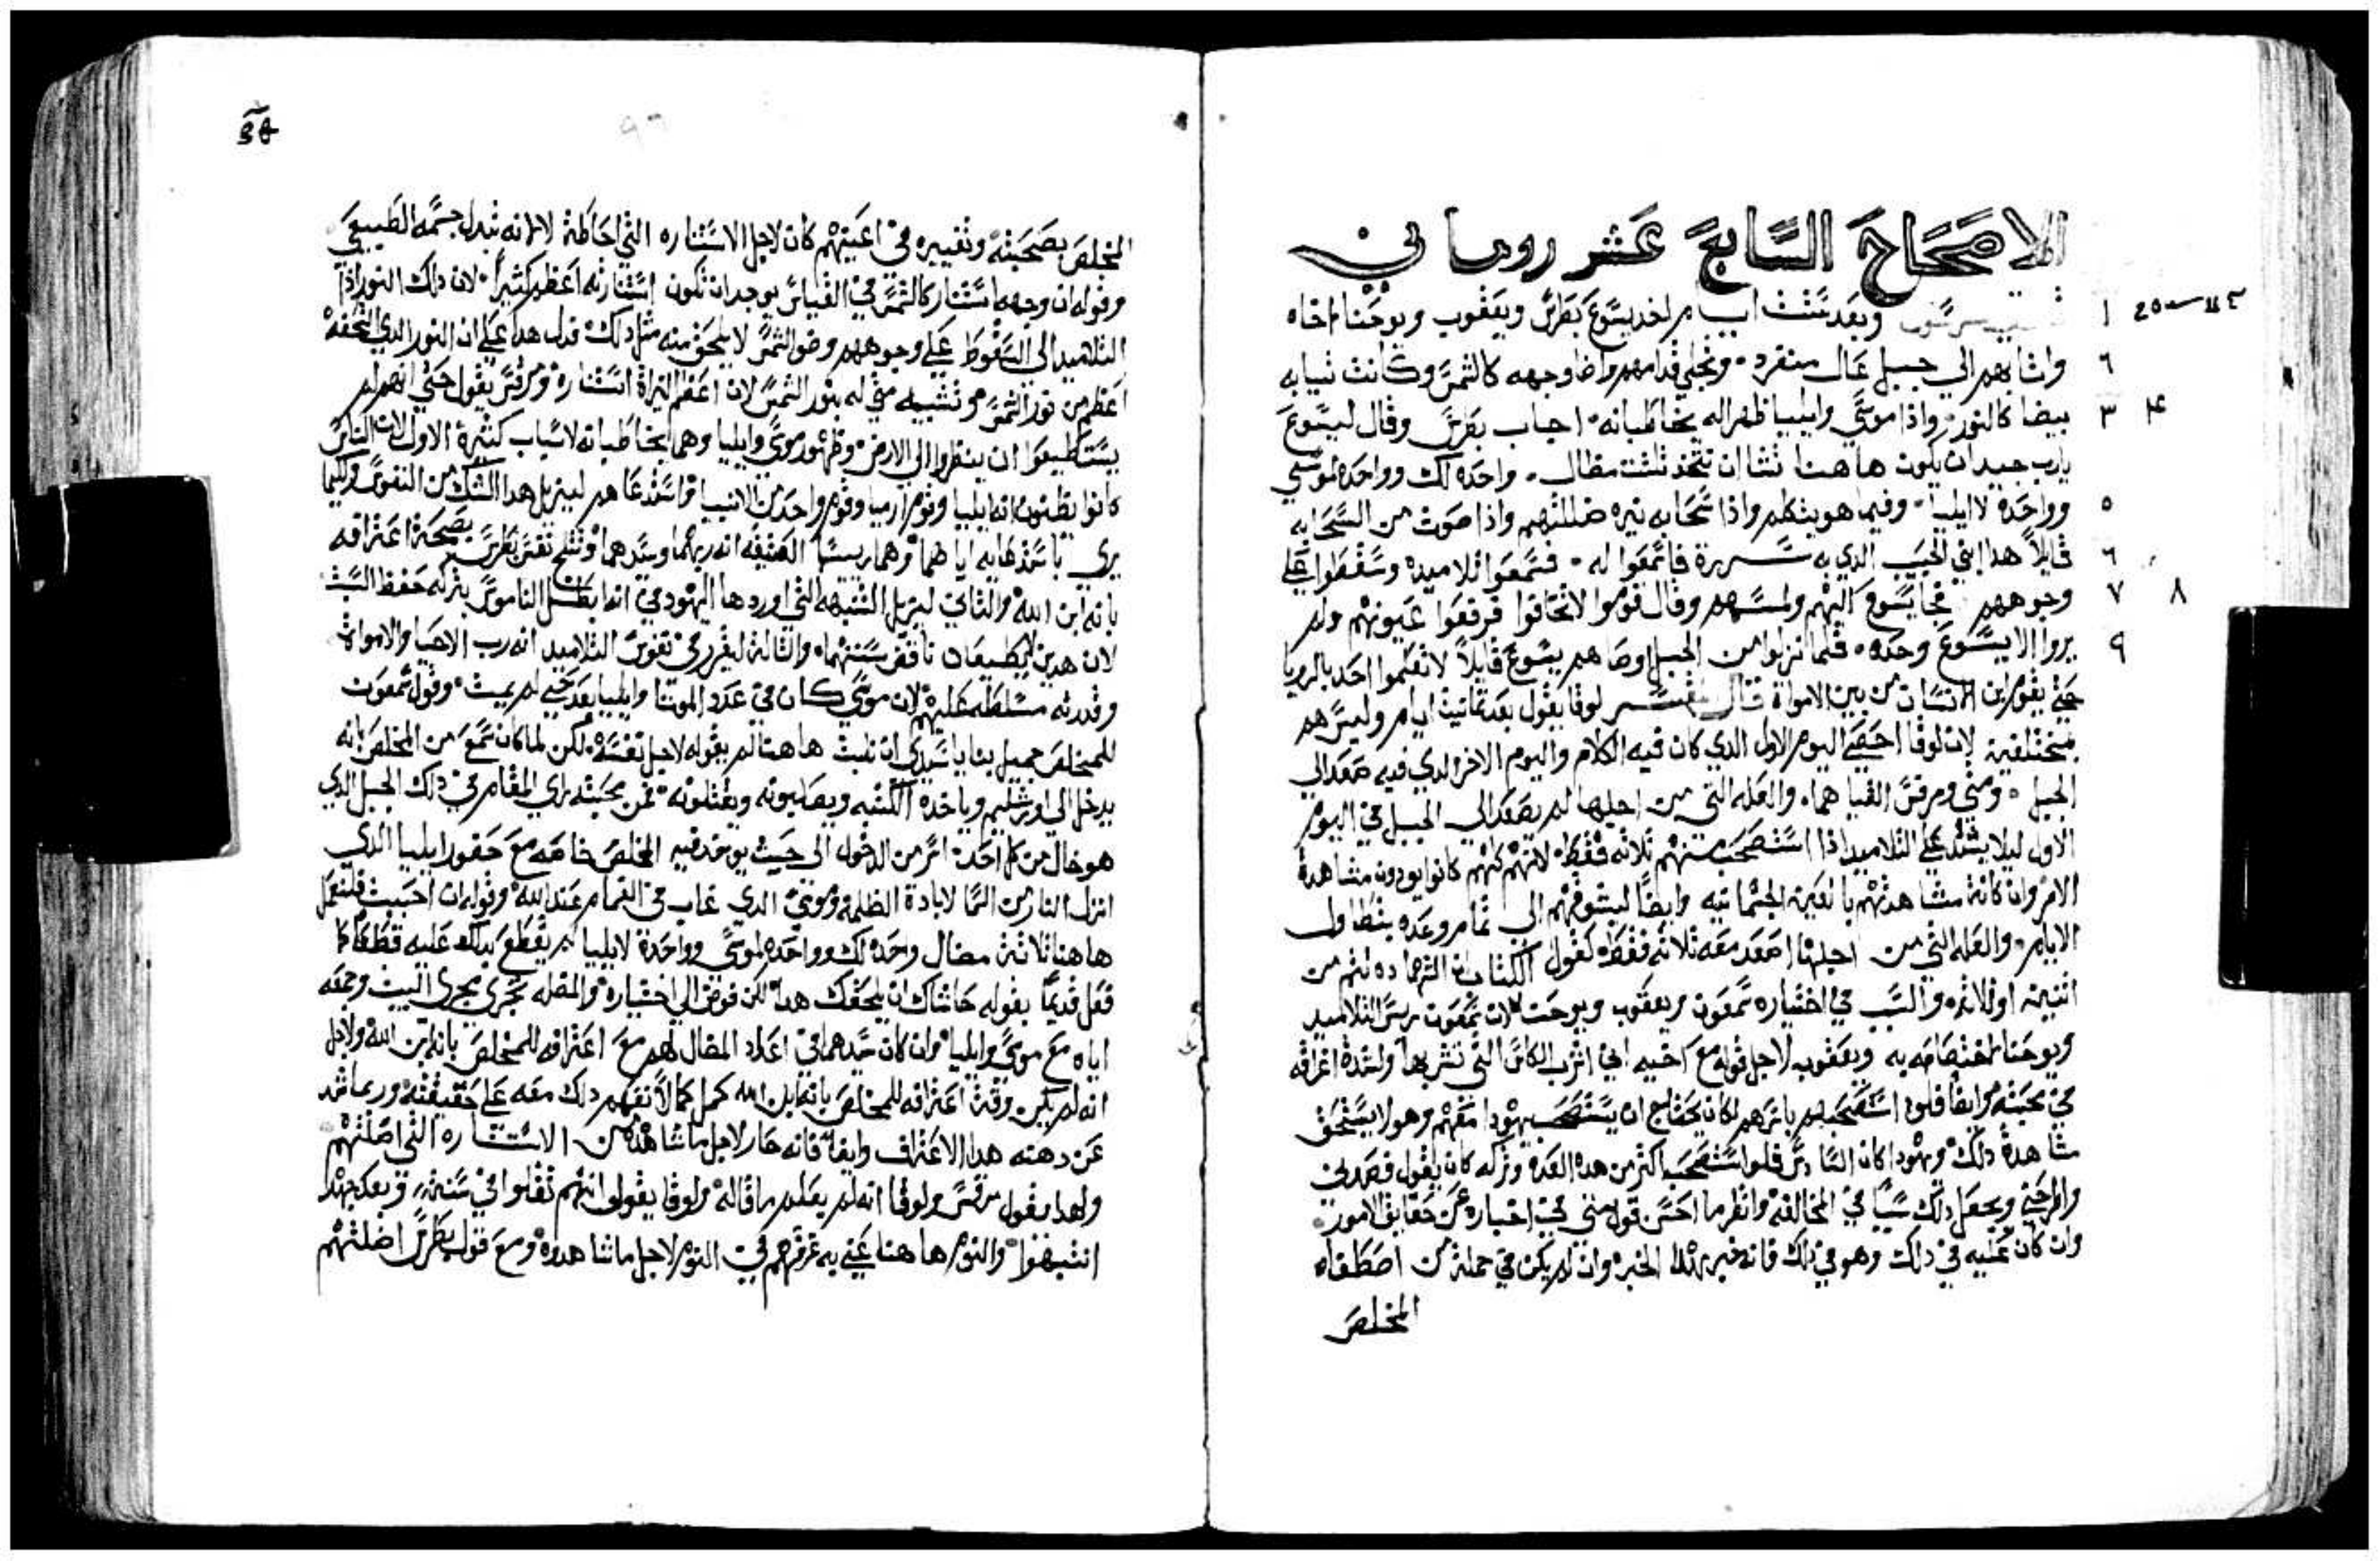 الاصحاح السابع عشر روماني
وبعد ستت ايام اخد يسوع بطرس ويعقوب ويوحنا اخاه
واتا بهم الي جبل عال منفرد. وتجلي قدامهم واضا وجهه كالشمس وكانت ثيابه
بيضا كالنور. واذا موسي وايليا ظهرا له يخاطبانه. اجاب بطرس وقال ليسوع
يارب جيد ان يكون هاهنا تشا ان نتخذ تلتت مظال. واحده لك وواحده لموسي
وواحده لايليا. وفيما هو يتكلم واذا سحابه نيره ضللتهم واذا صوت من السحابه
قايلاً هدا ابني الحبيب الدي به سررة فاسمعوا له. فسمعوا تلاميده وسقطوا علي
وجوههم فجا يسوع اليهم ولمسهم وقال قوموا لاتخافوا فرفعوا عيونهم ولم
يروا الا يسوع وحده. فلما نزلوا من الجبل اوصاهم يسوع قايلاً لا تعلموا احد بالرويا
حتي يقوم ابن الانسان من بين الاموات قال المفسر لوقا يقول بعد تمانية ايام وليس هم
مختلفين لان لوقا احصي اليوم الاول الدي كان فيه الكلام واليوم الاخر الدي فيه صعد الي
الجبل. ومتي ومرقس القياهما. والعله التي من اجلها لم يصعد الي الجبل في اليوم
الاول ليلا يشتد علي التلاميد اذا استصحب منهم تلاته فقط لانهم كلهم كانوا يودون مشاهدة
الامر وان كانة مشاهدتهم بالعين الجسمانيه وايضًا ليشوقهم الي تمام وعده بتطاول
الايام. والعله التي من اجلها اصعد معه تلاته فقط كقول الكتاب ان الشهاده تتم من
اتنين او تلاته والسبب في اختياره سمعون ويعقوب ويوحنا لان سمعون ريس التلاميد
ويوحنا لاختصاصه به ويعقوب لاجل قوله مع اخيه اني اشرب الكاس التي تشربها ولشدة اغراقه
في محبته وايضا فلو استصحبهم باسرهم لكان يحتاج ان يستصحب يهودا معهم وهو لا يستحق
مشاهدة دلك ويهودا كان السادس فلو استصحب اكثر من هده العدة وتركه كان يقول قصدني
واطرحني ويجعل دلك سببًا في المخالفه وانظر ما احسن قول متي في اخباره عن حقايق الامور
وان كان عليه في دلك وهو في دلك فانه خبر بهدا الخبر وان لم يكن في جملة من اصطفاه
المخلص
المخلص بصحبته وتغييره في اعينهم كان لاجل الاستناره التي احاطة لا لانه تبدل جسمه الطبيعي
وقوله ان وجهه استنار كالشمس في القياس يوجد ان تكون استنارته اعظم كثيراً. لان دلك النور اذا
التلاميد الي السقوط علي وجوههم وضو الشمس لا يلحق منه مثل دلك فدل هدا علي ان النور الدي التحفه
اعظم من نور الشمس وتشبيه متي له بنور الشمس لان اعظم النيراة استنارة ومرقس يقول حتي انهم لم
يستطيعوا ان ينظروا الي الارض وظهور موسي وايليا وهما يخاطبانه لاسباب كثيرة الاول لان الناس
كانوا يظنون انه ايليا وقوم ارميا وقوم واحد من الانبيا فاستدعاهم ليزيل هدا الشك من النفوس ولكيما
يري باستدعايه اياهما وهما ريسا العتيقه انه ربهما وسيدهما وتتلج نفس بطرس بصحة اعترافه
بانه ابن الله والتاني ليزيل الشبهه التي اوردها اليهود في انه ابطل الناموس بتركه حفظ السبت
لان هدين لا يطيعان ناقض سنتهما. والتالة ليقرر في نفوس التلاميد انه رب الاحيا والاموات
وقدرته مسلطه عليهم لان موسي كان في عدد الموتا وايليا بعد حي لم يمت. وقول سمعون
للمخلص جميل بنا ياسيدي ان نلبت هاهنا لم يقوله لاجل نفسه. لكن لما كان سمع من المخلص بانه
يدخل الي اورشليم وياخده الكتبه ويصلبونه ويقتلونه. فمن محبته راي المقام في دلك الجبل الدي
هو خال من كل احد. اثر من الدخول الي حيث يوخد فيه المخلص خاصه مع حضور ايليا الدي
انزل النار من السما لابادة الظلمه وموسي الدي غاب في الغمام عند الله وقوله ان احببت فلنعمل
هاهنا تلاتة مضال واحده لك وواحده لموسي وواحدة لايليا لم يقطع بدلك عليه قطعا كما
فعل قديمًا بقوله حاشاك ان يلحقك هدا لكن فوض الي اختياره والمظله تجري مجري البيت وجمعه
اياه مع موسي وايليا وان كان سيدهما في اعداد المضال لهم مع اعترافه للمخلص بانه ابن الله ولاجل
انه لم يكن وقت اعترافه للمخلص بانه ابن الله كمل كمالاً تفهم دلك معه علي حقيقته وربما شد
عن دهنه هدا الاعتراف وايضًا فانه حار لاجل ما شاهده من الاستناره التي اضلتهم
ولهدا يقول مرقس ولوقا انه لم يعلم ما قاله ولوقا يقول انهم تقلوا في سنة. وبعد جهد
انتبهوا والنوم هاهنا عني به غرقهم في النوم لاجل ما شاهدوه ومع قول بطرس اضلتهم